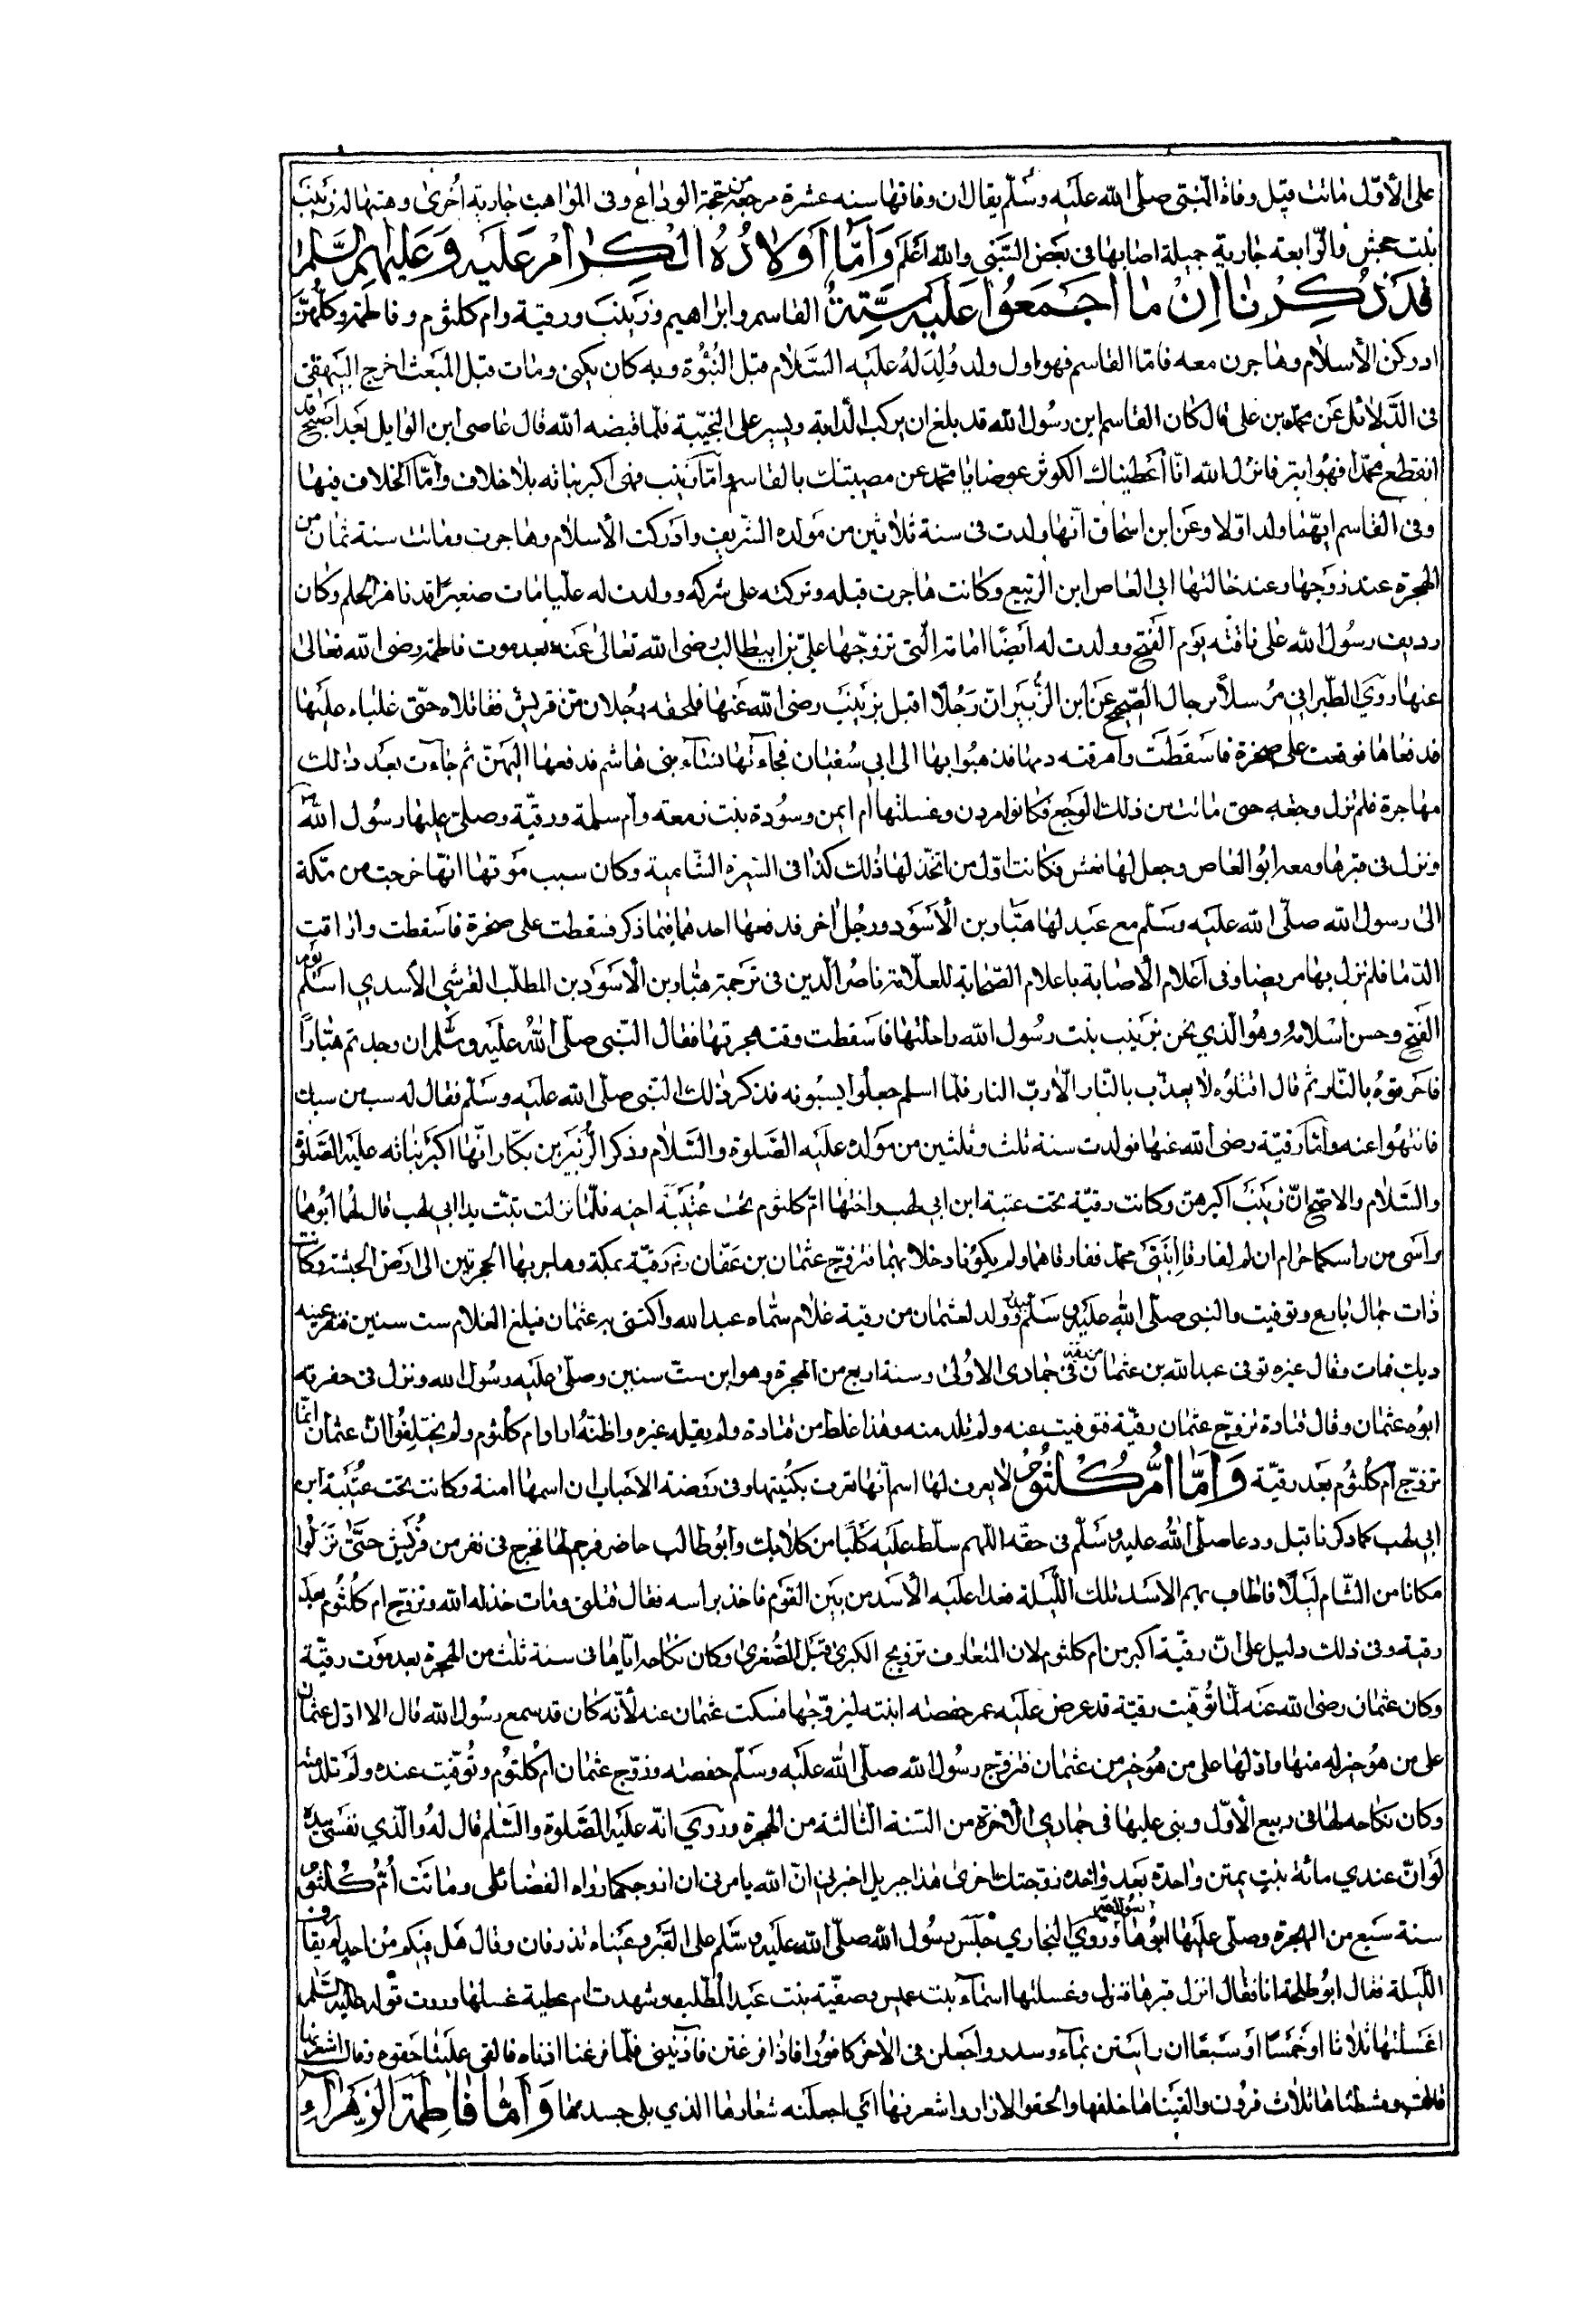 على الأوّل ماتت قبل وفاة النّبيّ صلّى الله عليه وسلّم يقال ان وفاتها سنه عشرة مرجعه من حجّة الوداع وفى المواهب جارية أخرى وهبتها له زينب
بنت جحش والرّابعة جارية جميلة اصابها فى بعض السّبي والله اعلم وَأمّا أولادُهُ الكِرام عَليه وَعَليهم السَّلم
فَذكِرنا اِنْ ما اجمَعُوا عَليه سِتّةٌ القاسم وابراهيم وزينب ورقيّة وام كلثوم وفاطمة وكلّهنّ
ادركن الأسلام وهاجرن معه فامّا القاسم فهو اول ولد وُلِدَ لهُ عليه السّلام قبل النّبوّة وبه كان يكنى ومات قبل المبعث اخرج البيهقى
فى الدّلائل عن محمّد بن على قال كان القاسم ابن رسول الله قد بلغ ان يركب الدّابة ويسير على النّجيبة فلمّا قبضه الله قال عاصى ابن الوايل لقد اصبح قد
انقطع محمّدًا فهو ابتر فانزل الله انّا أعطيناك الكوثر عوضا يا محمّد عن مصيبتك بالقاسم وأمّا زينب فهى أكبر بناته بلا خلاف وأمّا الخلاف فيها
وفى القاسم ايّهما ولد اوّلا وعن ابن اسحاق انّها ولدت فى سنة ثلاثين من مولده الشّريف وادركت الأسلام وهاجرت وماتت سنة ثمان من
الهجرة عند زوجها وعند خالتها ابى العاص ابن الرّبيع وكانت هاجرت قبله وتركته على شركه وولدت له عليّا مات صغيرًا قد ناهز الحلم وكان
رديف رسول الله على ناقته يوم الفتح وولدت له ايضًا امامة الّتى تزوّجها علىّ بن ابيطالب رضى الله تعالى عنه بعد موت فاطمة رضى الله تعالى
عنها وروي الطّبراني مرسلاً برجال الصّحيح عن ابن الزّبير انّ رجُلًا اقبل بزينب رضى الله عنها فلحقه رجُلان من قريش فقاتلاه حتّى غلباء عليها
فدفعاها فوقعت على صخرة فاسقطت واهرقت دما فذهبوا بها الى ابي سُفيان فجاءتها نساء بنى هاشم فدفعها اليهنّ ثم جاءت بعد ذلك
مهاجرة فلم تزل وجعه حتى ماتت من ذلك الوجع فكانوا مردن وغسلتها ام ايمن وسودة بنت زمعه وأم سلمة ورقيّة وصلى عليها رسول الله
ونزل فى قبرها ومعه ابو العاص وجعل لها نعش فكانت اوّل من اتّخذ لها ذلك كذا فى السّيرة الشّامية وكان سبب موتها انّها خرجت من مكّة
الى رسول الله صلّى الله عليه وسلّم مع عبد لها هبّار بن الأسود ورجُل اخر فدفعها احدهما فيما ذكر فسقطت على صخرة فاسقطت واراقت
الدّما فلم تزل بها مريضا وفى أعلام الأصابة باعلام الصّحابة للعلّامة ناصر الدّين فى ترجمة هبّار بن الأسود بن المطلّب القرشي الأسدي اسلم يوم
الفتح وحسن اسلامه وهو الّذي نخس بزينب بنت رسول الله راحلتها فاسقطت وقت هجرتها فقال النّبى صلّى الله عليه وسلم ان وجدتم هبّارًا
فاحرقوهُ بالنّار ثم قال اقتلوه لا يعذّب بالنّار الّا ربّ النار فلمّا اسلم جعلوا يسبونه فذكر ذلك النّبى صلّى الله عليه وسلّم فقال له سب من سبك
فانتهوا عنه وأمّا رقيّة رضى الله عنها فولدت سنة ثلث وثلثين من مولده عليه الصّلوة والسّلام وذكر الزّبير بن بكّار انّها أكبر بناته عليه الصّلوة
والسّلام والاصّح انّ زينب أكبرهنّ وكانت رقيّة تحت عتبة ابن ابي لهب واختها امّ كلثوم تحت عُتيبة اخيه فلمّا نزلت تبّت يدا ابى لهب قال لهما أبوهما
رأسى من راسكما حرام ان لم تفارقا ابنتى محمّد ففارقاهما ولم يكونا دخلا بهما فتزوّج عثمان بن عفّان رقيّة بمكّة وهاجر بها الهجرتين الى ارض الحبشة وكانت
ذات جمال بارع وتوفيت والنبى صلّى الله عليه وسلّم ببدر وولد لعثمان من رقية غلام سمّاه عبد الله واكتنى به عثمان فبلغ الغلام ست سنين فنقر عينه
ديك فمات وقال غيره توفى عبد الله بن عثمان من رقيّة فى جمادى الاولى وسنة اربع من الهجرة وهو ابن ستّ سنين وصلّى عليه رسول الله ونزل فى حفرته
ابوه عثمان وقال قتادة تزوّج عثمان رقيّة فتوفيت عنه ولم تلد منه وهذا غلط من قتادة ولم يقله غيره واظنّهُ اراد ام كلثوم ولم يختلفوا انّ عثمان انّما
تزوّج أم كلثوم بعد رقيّة وَأمّا امُّ كُلثُوم لا يعرف لها اسم انّها تعرف بكنيتها وفى روضة الاحباب ان اسمها امنة وكانت تحت عتيبة ابن
ابي لهب كما ذكرنا قبل ودعا صلّى الله عليه وسلّم فى حقّه اللّهم سلّط عليه كلبًا من كلابك وابو طالب حاضر فرجم لها فخرج فى نفر من قريش حتّى نزلوا
مكانا من الشّام ليلًا فاطاف بهم الاسد تلك اللّيلة فعدا عليه الأسد من بين القوم فاخذ براسه فقال قتلنى ومات خذله الله وتزوّج ام كلثوم بعد
رقية وفى ذلك دليل على انّ رقيّة اكبر من ام كلثوم لان المتعارف تزويج الكبرى قبل الصّغرى وكان نكاحه ايّاها فى سنة ثلث من الهجرة بعد موت رقيّة
وكان عثمان رضى الله عنه لمّا توفّيت رقيّة قد عرض عليه عمر حفصه ابنته ليزوّجها فسكت عثمان عنه لأنّه كان قد سمع رسول الله قال الا ادّل عثمان
على من هو خير له منها وادّلها على من هو خير من عثمان فتزوّج رسول الله صلّى الله عليه وسلّم حفصه وزوّج عثمان ام كلثوم وتوفّيت عنده ولم تلد منه
وكان نكاحه لها فى ربيع الأوّل وبنى عليها فى جمادي الأخرة من السّنة الثّالثة من الهجرة وروي انّه عليه الصّلوة والسّلم قال لهُ والّذي نفسى بيده
لو انّ عندي مائة بنت يمتن واحدة بعد واحده زوّجتك اخرى هذا جبريل اخبرني انّ الله يامرنى ان ازوجكها رواه الفضائلى وماتت أمّ كُلثوم
سنة سبع من الهجرة وصلّى عليها ابوها رسول الله وروي البخاري جلس رسول الله صلّى الله عليه وسلّم على القبر وعيناه تذرفان وقال هل فيكم من احد لم يقارف
اللّيلة فقال ابو طلحة انا فقال انزل قبرها فنزل وغسلتها اسماء بنت عميس وصفيّة بنت عبد المطّلب وشهدت ام عطية غسلها وروت قوله عليه السّلم
اغسلنها ثلاثا او خمسًا او سبعًا ان رايتن بماء وسدر واجعلن فى الأخر كافورًا فاذا فرغتن فآذنّنى فلمّا فرغنا اذنّاه فالقى علينا حقوه وقال اشعرنها
قالت ومشطناها ثلاث قرون والقيناها خلفها والحقو الازار واشعرنها اي اجعلنه شعارها الذي يلى جسدها وَأمّا فَاطمة الزهراء